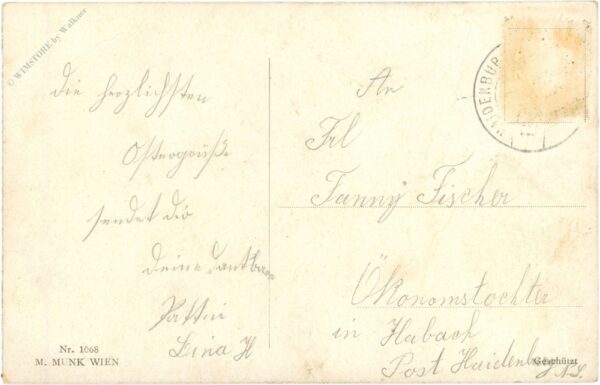 © WIMSTORE by Walkner
die herzlichsten
Ostergrüße
sendet dir
deine dankbare
Lina H
An
Frl
Fanny Fischer
Ökonomstochter
in Habach
Post Haidenburg
N.B.
HAIDENBURG
Nr. 1068
M. MUNK WIEN
Geschützt